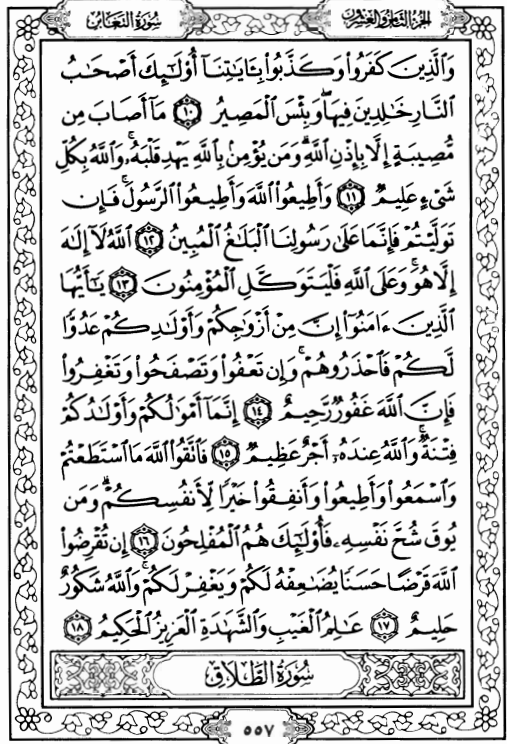 الجزء الثامن والعشرون سورة التغابن
وَالَّذِينَ كَفَرُوا۟ وَكَذَّبُوا۟ بِـَٔايَـٰتِنَآ أُو۟لَـٰٓئِكَ أَصْحَـٰبُ
النَّارِ خَـٰلِدِينَ فِيهَا ۖ وَبِئْسَ الْمَصِيرُ ١٠ مَآ أَصَابَ مِن
مُّصِيبَةٍ إِلَّا بِإِذْنِ اللَّهِ ۗ وَمَن يُؤْمِنۢ بِاللَّهِ يَهْدِ قَلْبَهُۥ ۚ وَاللَّهُ بِكُلِّ
شَىْءٍ عَلِيمٌ ١١ وَأَطِيعُوا۟ اللَّهَ وَأَطِيعُوا۟ الرَّسُولَ ۚ فَإِن
تَوَلَّيْتُمْ فَإِنَّمَا عَلَىٰ رَسُولِنَا الْبَلَـٰغُ الْمُبِينُ ١٢ اللَّهُ لَآ إِلَـٰهَ
إِلَّا هُوَ ۚ وَعَلَى اللَّهِ فَلْيَتَوَكَّلِ الْمُؤْمِنُونَ ١٣ يَـٰٓأَيُّهَا
الَّذِينَ ءَامَنُوٓا۟ إِنَّ مِنْ أَزْوَٰجِكُمْ وَأَوْلَـٰدِكُمْ عَدُوًّا
لَّكُمْ فَاحْذَرُوهُمْ ۚ وَإِن تَعْفُوا۟ وَتَصْفَحُوا۟ وَتَغْفِرُوا۟
فَإِنَّ اللَّهَ غَفُورٌ رَّحِيمٌ ١٤ إِنَّمَآ أَمْوَٰلُكُمْ وَأَوْلَـٰدُكُمْ
فِتْنَةٌ ۚ وَاللَّهُ عِندَهُۥٓ أَجْرٌ عَظِيمٌ ١٥ فَاتَّقُوا۟ اللَّهَ مَا اسْتَطَعْتُمْ
وَاسْمَعُوا۟ وَأَطِيعُوا۟ وَأَنفِقُوا۟ خَيْرًا لِّأَنفُسِكُمْ ۗ وَمَن
يُوقَ شُحَّ نَفْسِهِۦ فَأُو۟لَـٰٓئِكَ هُمُ الْمُفْلِحُونَ ١٦ إِن تُقْرِضُوا۟
اللَّهَ قَرْضًا حَسَنًا يُضَـٰعِفْهُ لَكُمْ وَيَغْفِرْ لَكُمْ ۚ وَاللَّهُ شَكُورٌ
حَلِيمٌ ١٧ عَـٰلِمُ الْغَيْبِ وَالشَّهَـٰدَةِ الْعَزِيزُ الْحَكِيمُ ١٨
سُورَةُ الطَّلَاقِ
٥٥٧